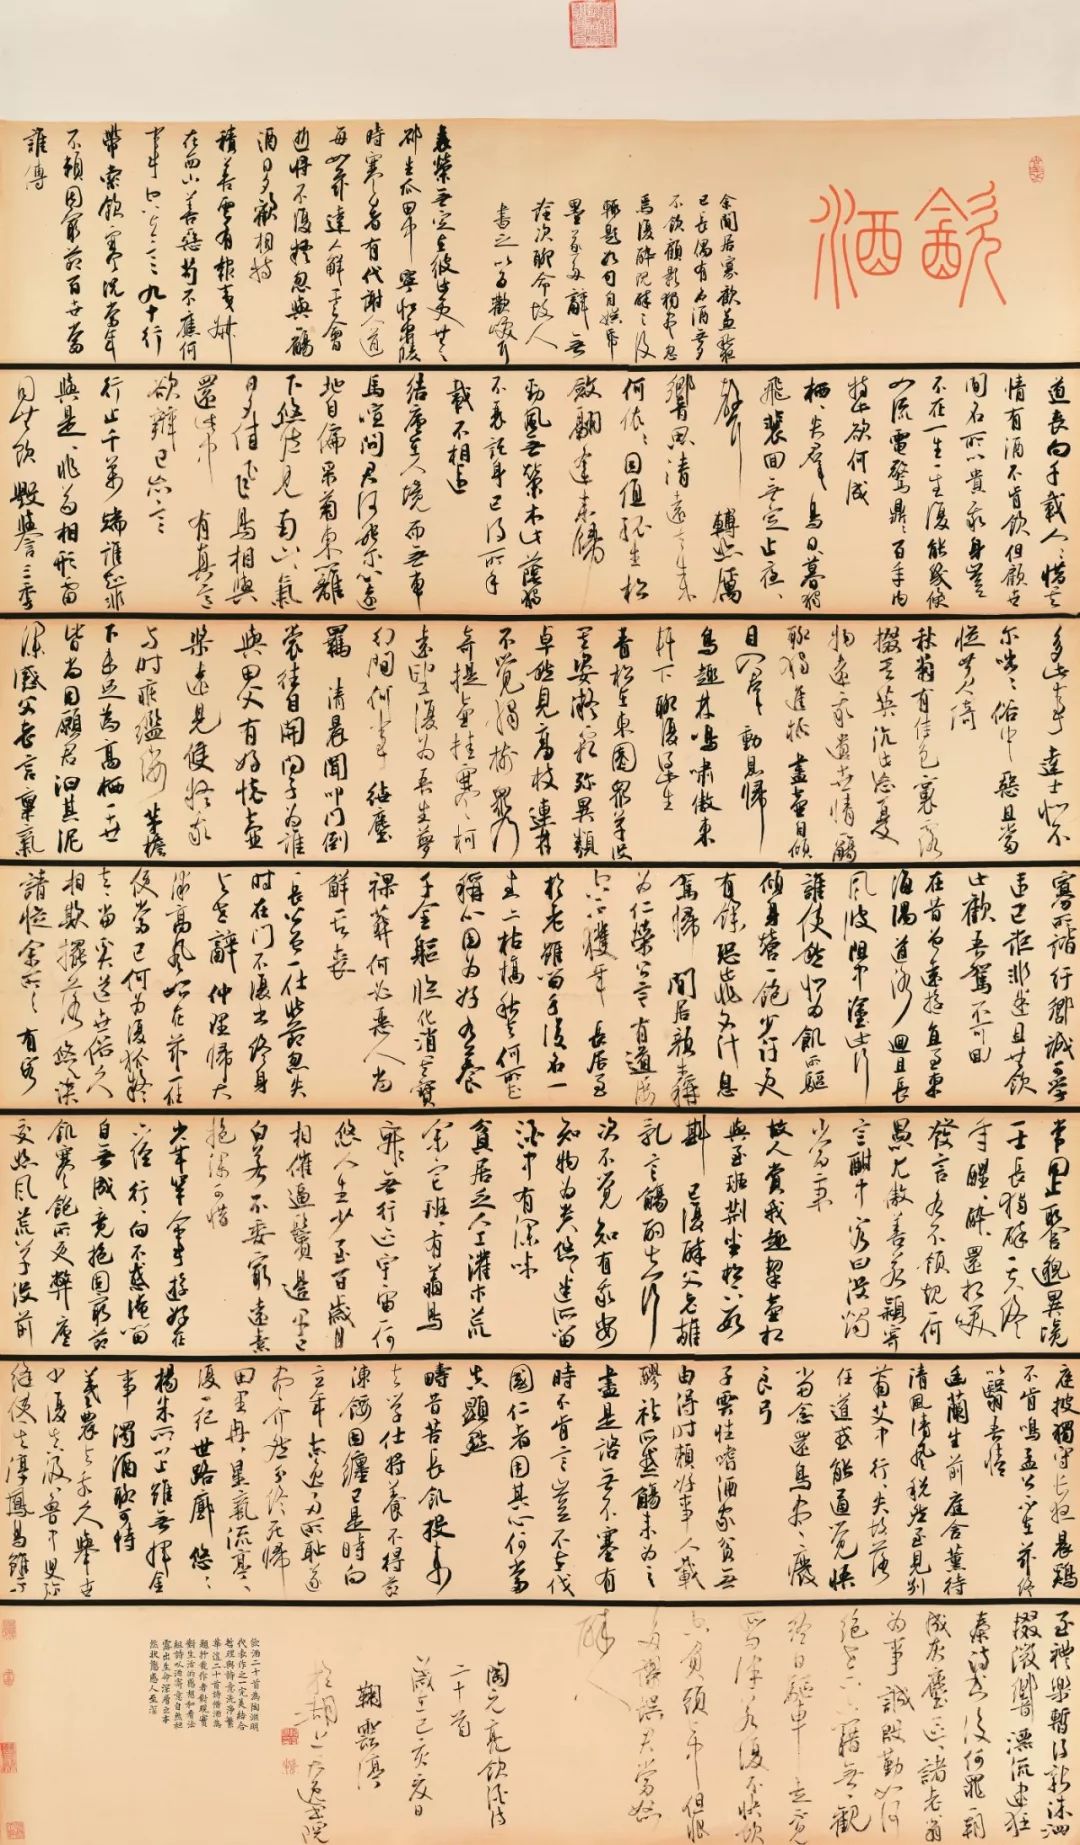 飲酒
余閒居寡歡兼比夜
已長偶有名酒無夕
不飲顧影獨盡忽
焉復醉既醉之後
輒題數句自娛紙
墨遂多辭無
詮次聊命故人
書之以為歡笑爾
衰榮無定在彼此更共之
邵生瓜田中寧似東陵
時寒暑有代謝人道
每如茲達人解其會
逝將不復疑忽與觴
酒日夕歡相持
積善云有報夷叔
在西山善惡苟不應何
事空立言九十行
帶索飢寒況當年
不賴固窮節百世當
誰傳
道喪向千載人人惜其
情有酒不肯飲但顧世
間名所以貴我身豈
不在一生一生復能幾倏
如流電驚鼎鼎百年內
持此欲何成
栖栖失群鳥日暮猶
飛裴回無定止夜夜
聲轉悲厲
響思清遠去來
何依依因值孤生松
斂翮遙來歸
勁風無榮木此蔭獨
不衰託身已得所千
載不相違
結廬在人境而無車
馬喧問君何能爾心遠
地自偏采菊東籬
下悠然見南山氣
日夕佳飛鳥相與
還此中有真意
欲辨已忘言
行止千萬端誰知非
與是是非苟相形雷
同共毀譽三季
多此事達士似不
爾咄咄俗中惡且當
從黃綺
秋菊有佳色裛露
掇其英汎此忘憂
物遠我遺世情一觴
聊獨進杯盡壺自傾
日入群動息歸
鳥趨林鳴嘯傲東
軒下聊復得生
青松在東園眾草沒
其姿凝霜殄異類
卓然見高枝連林
不覺獨樹眾乃
奇提壺挂寒柯
遠望復為吾生夢
幻間何事紲塵
羈清晨聞叩門倒
裳往自開問子為誰
與田父有好懷壺
漿遠見候疑我
與時乖襤縷茅簷
下未足為高栖一世
皆尚同願君汩其泥
深感父老言稟氣
寡所諧紆轡誠可學
違己詎非迷且共飲
此歡吾駕不可回
在昔曾遠遊直至東
海隅道路迴且長
風波阻中塗此行
誰使然似為飢所驅
傾身營一飽少許更
有餘恐此非名計息
駕歸閒居顏生稱
為仁榮公言有道屢
空不獲年長飢至
於老雖留身後名一
生亦枯槁死去何所知
稱心固為好客養
千金軀臨化消其寶
裸葬何必惡人當
解意表
長公曾一仕壯節忽失
時杜門不復出終身
與世辭仲理歸大
澤高風始在茲一往
便當已何為復狐疑
去去當奚道世俗久
相欺擺落悠悠談
請從余所之有客
常同止取舍邈異境
一士長獨醉一夫終
年醒醒醉還相笑
發言各不領規一何
愚兀傲差若穎寄
言酣中客日沒燭
當秉
故人賞我趣挈壺相
與至班荊坐松下數
斟已復醉父老雜
亂言觴酌失行
次不覺知有我安
知物為貴悠悠迷所留
酒中有深味
貧居乏人工灌木荒
余宅班班有翔鳥
寂寂無行跡宇宙一何
悠人生少至百歲月
相催逼鬢邊早已
白若不委窮達素
抱深可惜
少年罕人事遊好在
六經行行向不惑淹留
自無成竟抱固窮節
飢寒飽所更弊廬
交悲風荒草沒前
庭披褐守長夜晨雞
不肯鳴孟公不在茲終
以翳吾情
幽蘭生前庭含薰待
清風清風脫然至見別
蕭艾中行行失故路
任道或能通覺悟
當念還鳥盡廢
良弓
子雲性嗜酒家貧無
由得時賴好事人載
醪祛所惑觴來為之
盡是諮無不塞有
時不肯言豈不在伐
國仁者用其心何嘗
失顯默
疇昔苦長飢投耒
去學仕將養不得節
凍餒固纏己是時向
立年志意多所恥遂
盡介然分終死歸
田里冉冉星氣流亭亭
復一紀世路廓悠悠
楊朱所以止雖無揮金
事濁酒聊可恃
羲農去我久舉世
少復真汲汲魯中叟彌
縫使其淳鳳鳥雖不
至禮樂暫得新洙泗
輟微響漂流逮狂
秦詩書復何罪一朝
成灰塵區區諸老翁
為事誠殷勤如何
絕世下六籍無一親
終日驅車走不見
所問津若復不快飲
空負頭上巾但恨
多謬誤君當恕
醉人
陶元亮飲酒詩
二十首
歲在己亥夏日
飲酒二十首為陶淵明
代表作之一完美結合
哲理與詩意洗淨繁
華這二十首詩借酒為
題抒寫作者對現實
對生活的感想和看法
組詩以酒寄意自然袒
露出生命深層之本
然狀態感人至深